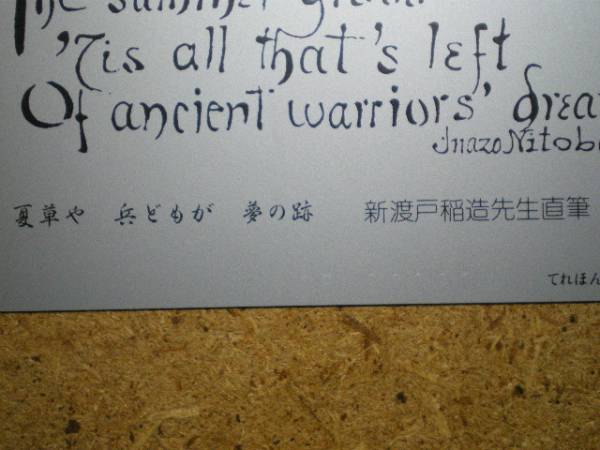 The summer grass
'Tis all that's left
Of ancient warriors' drea
Inazo Nitob
夏草や 兵どもが 夢の跡 新渡戸稲造先生直筆
てれほん